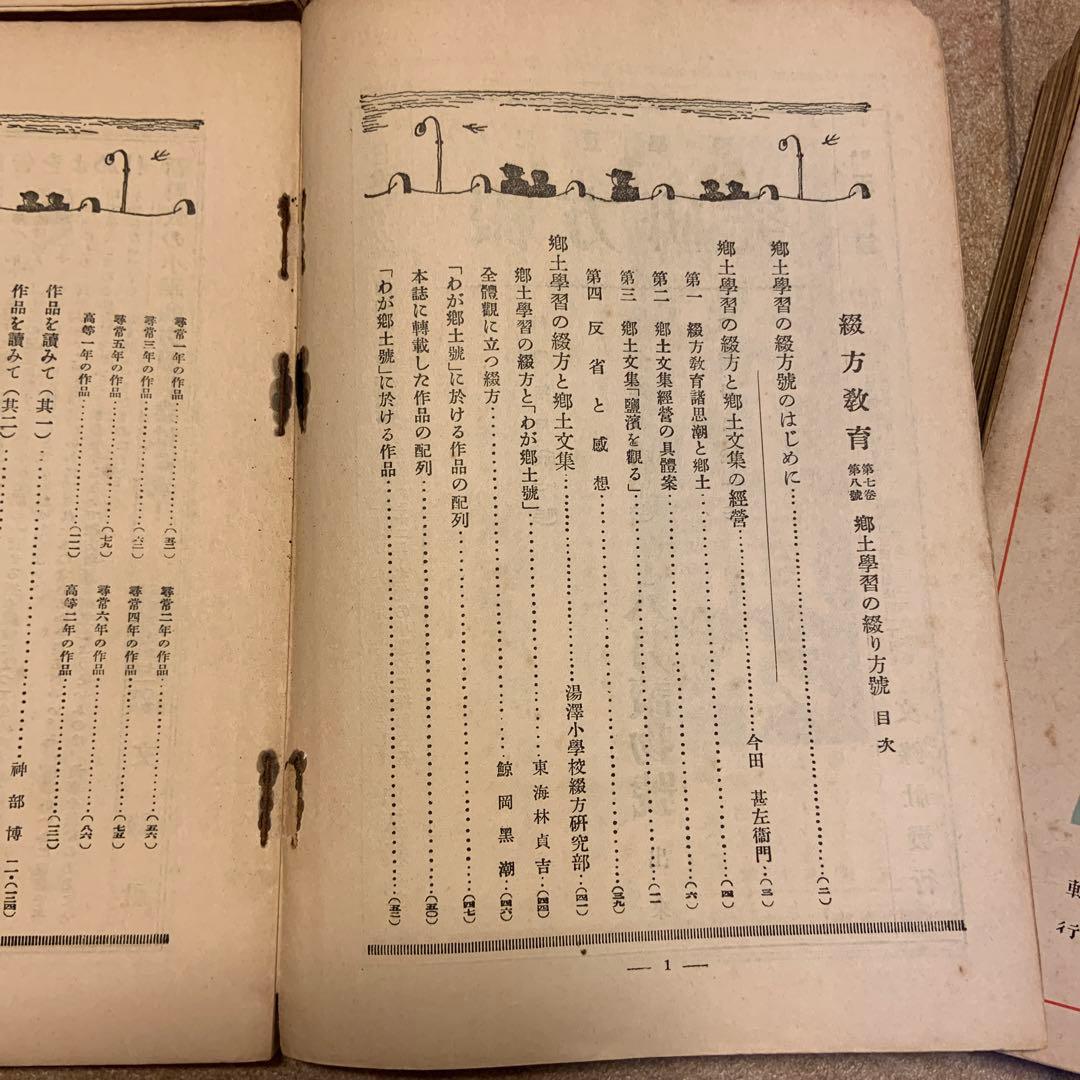 綴方敎育 第七卷第八號 鄕土學習の綴り方號 目次
鄕土學習の綴方號のはじめに……(二)
鄕土學習の綴方と鄕土文集の經營……今田甚左衞門…(三)
第一 綴方敎育諸思潮と鄕土……(四)
第二 鄕土文集經營の具體案……(六)
第三 鄕土文集「鹽濱を觀る」……(一一)
第四 反省と感想……(三九)
鄕土學習の綴方と鄕土文集……湯澤小學校綴方硏究部…(四一)
鄕土學習の綴方と「わが鄕土號」……東海林貞吉…(四四)
全體觀に立つ綴方……鯨岡黑潮…(四六)
「わが鄕土號」に於ける作品の配列……(四七)
本誌に轉載した作品の配列……(五〇)
「わが鄕土號」に於ける作品……(五二)
— 1 —
尋常一年の作品……(五二) 尋常二年の作品……(五六)
尋常三年の作品……(六二) 尋常四年の作品……(七五)
尋常五年の作品……(七九) 尋常六年の作品……(八六)
高等一年の作品……(一一二) 高等二年の作品……(一三一)
作品を讀みて(其一)
作品を讀みて(其二)……神部博二…(一三四)
行